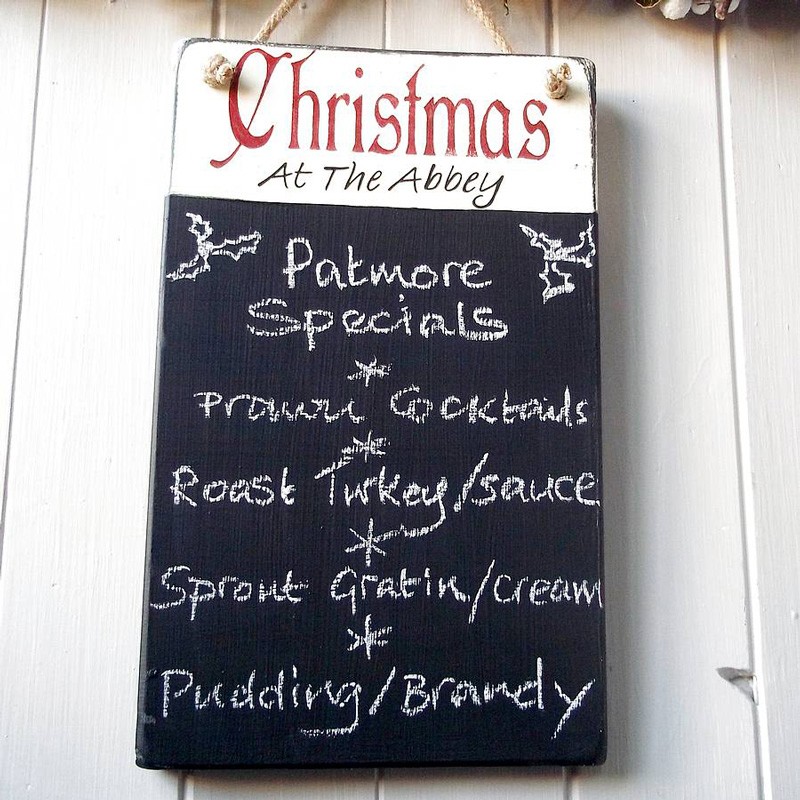 Christmas
At The Abbey
Patmore
Specials
Prawn Cocktails
Roast Turkey/sauce
Sprout Gratin/cream
Pudding/Brandy